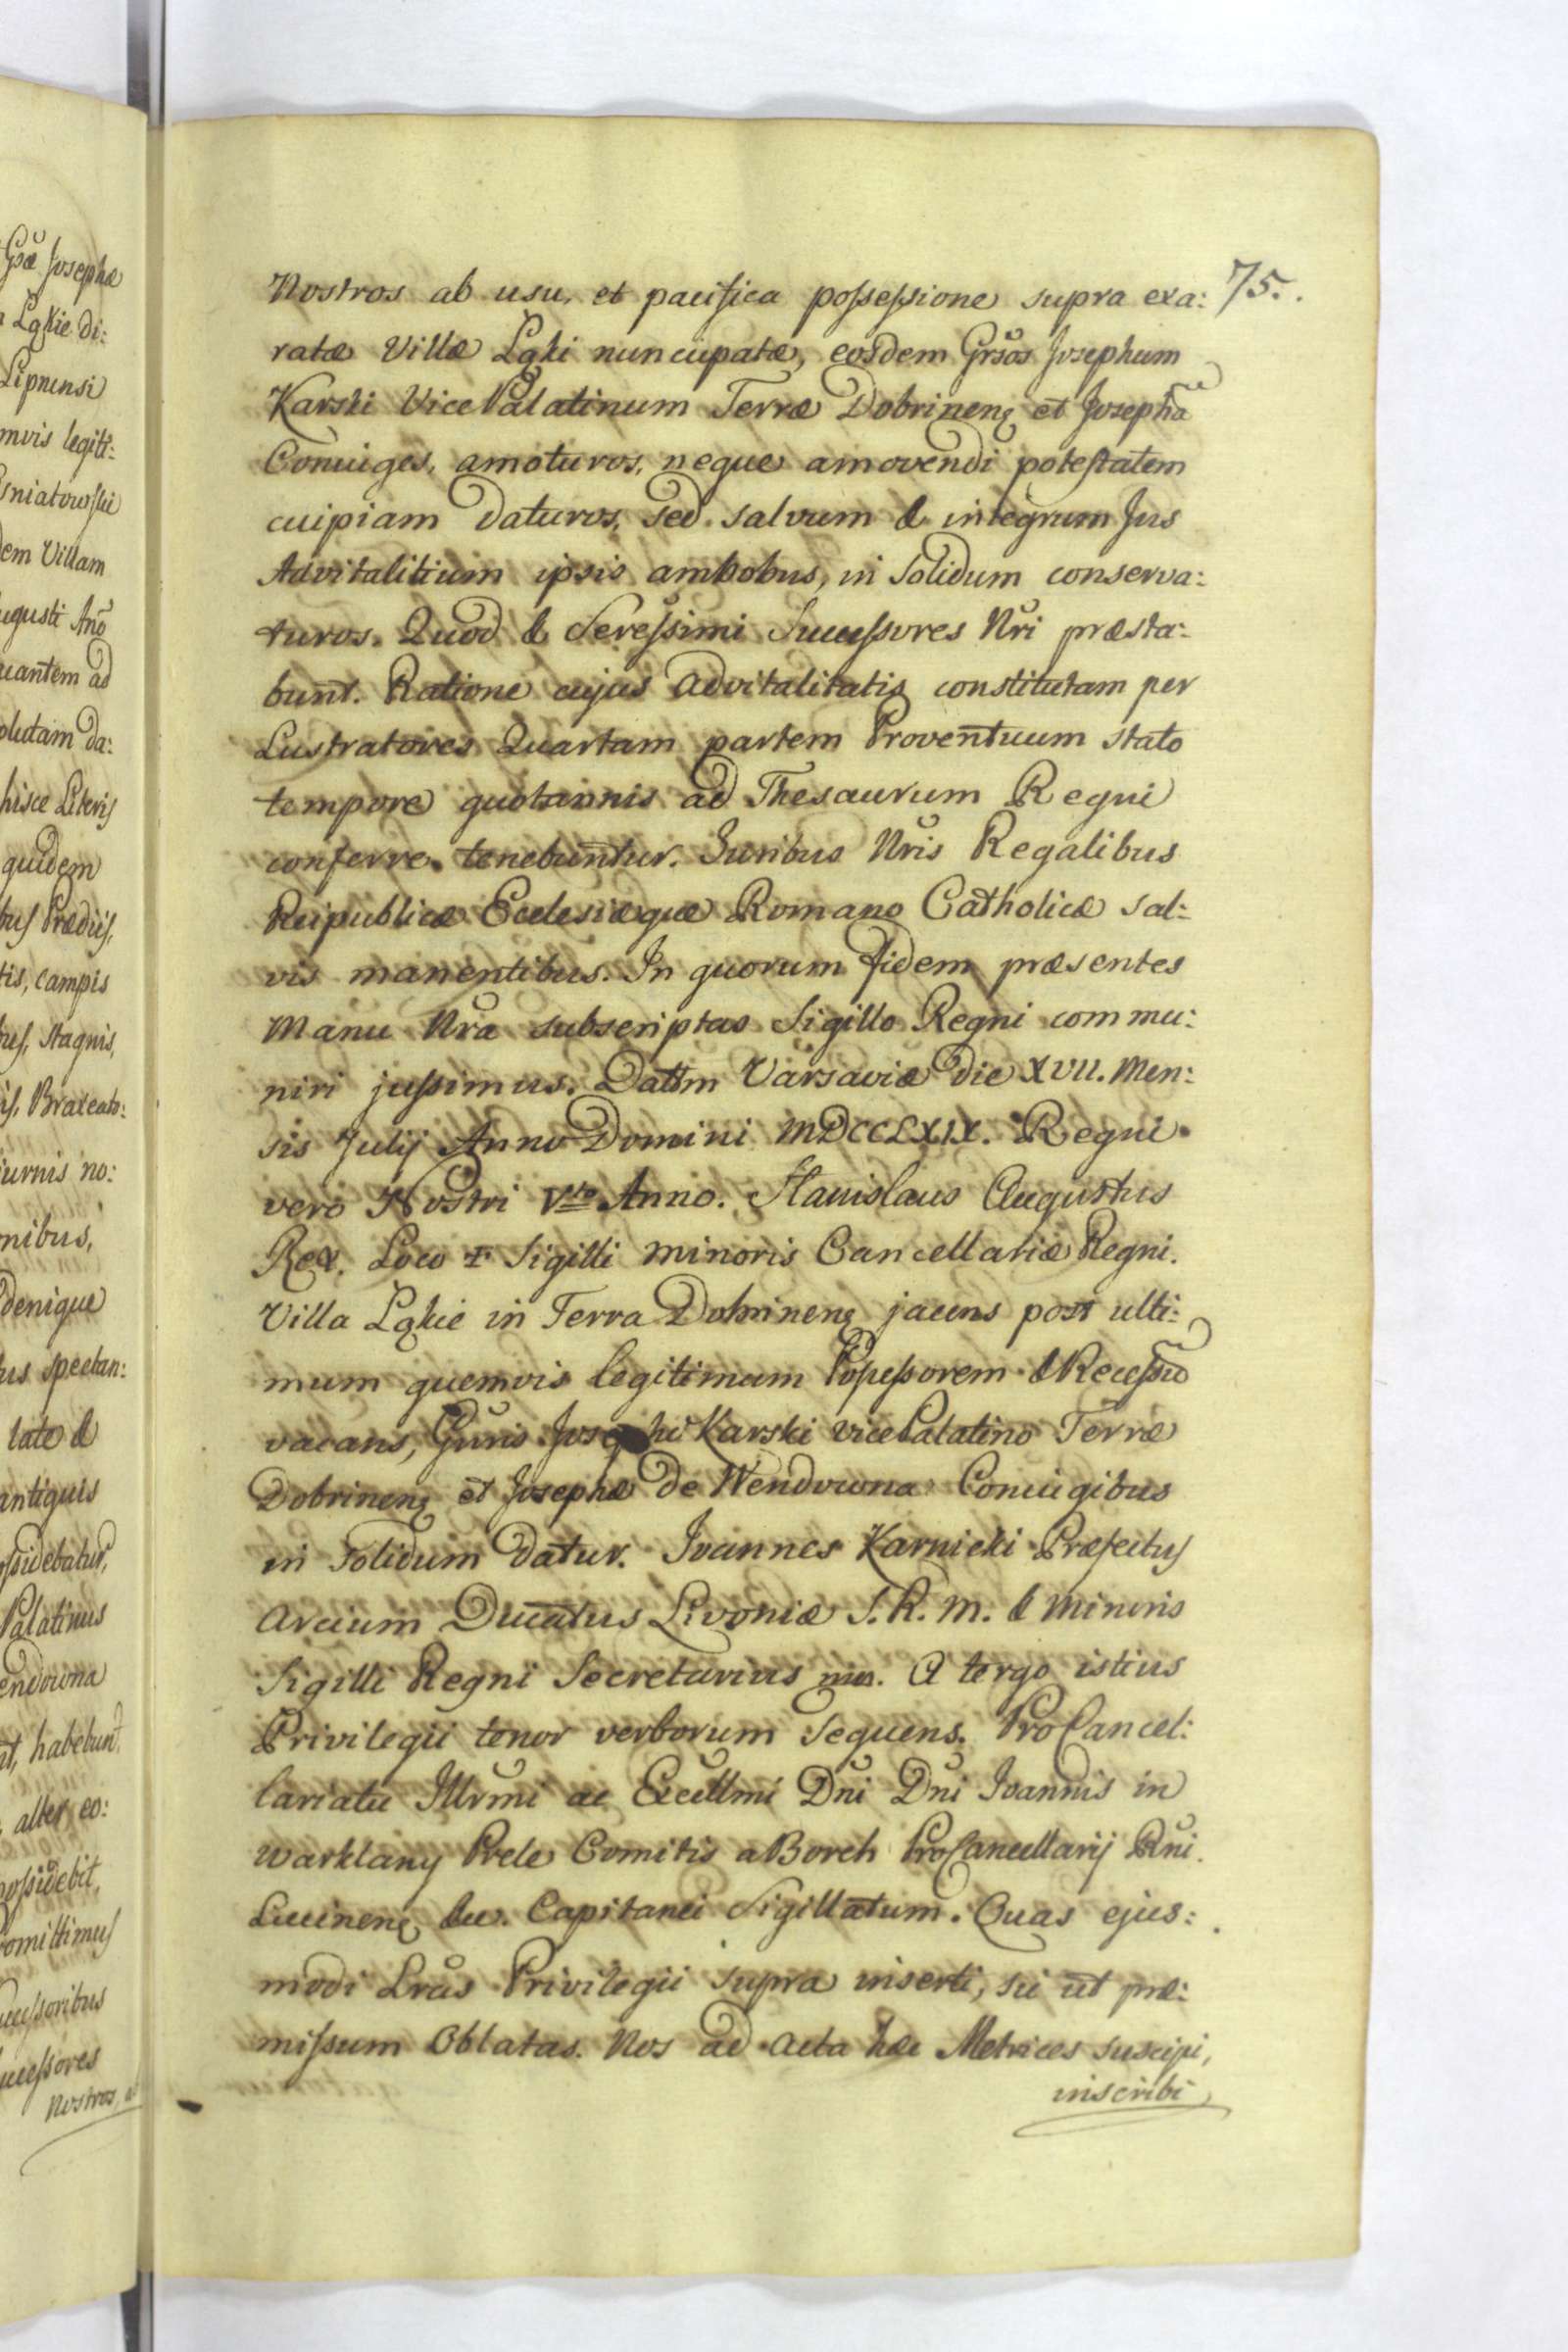 Gsæ Josephæ
Łąkie di:
Lipnensi
mvis legiti:
dem Villam
ugusti Año
uantem ad
olutam da:
hisce Literis
quidem
bus Prædiis,
tis, campis
stagnis,
Braxeato:
urnis no:
nibus,
denique
us spectan:
late &
antiquis
ossidebatur,
Palatinus
endowna
nt, habebunt
alter eo:
possidebit,
romittimus
uccessoribus
uccessores
Nostros, ab
75.
Nostros ab usu, et pacifica possessione supra exa:
ratæ Villæ Łąki nuncupatæ, eosdem Grsos Josephum
Karski Vice Palatinum Terræ Dobrinenę et Josephã
Coniuges, amoturos, neque amovendi potestatem
cuipiam daturos, sed salvum & integrum Jus
Advitalitium ipsis ambobus, in Solidum conserva:
turos. Quod & Seressimi Successores Nri præsta:
bunt. Ratione cujus advitalitatis constitutam per
Lustratores Quartam partem Proventuum stato
tempore quotannis ad Thesaurum Regni
conferre tenebuntur. Juribus Nris Regalibus
Reipublicæ Ecclesiæque Romano Catholicæ sal:
vis manentibus. In quorum fidem præsentes
Manu Nra subscriptas Sigillo Regni commu:
niri jussimus. Dattm Varsaviæ die XVII. Men:
sis Julij Anno Domini MDCCLXIX. Regni
vero Nostri Vto Anno. Stanislaus Augustus
Rex. Loco + Sigilli minoris Cancellariæ Regni.
Villa Łąkie in Terra Dobrinenę jacens post ulti:
mum quemvis legitimum Possessorem & Recessũ
vacans, Gsris Josephi Karski vice Palatino Terræ
Dobrinenę et Josephæ de Wendowna Coniugibus
in Solidum datur. Joannes Karnicki Præfectus
Arcium Ducatus Livoniæ S. R. M. & Minoris
Sigilli Regni Secretarius mp. A tergo istius
Privilegii tenor verborum Sequens. Pro Cancel:
lariatu Illrmi ac Excellmi Dni Dni Joannis in
Warklany Prele Comitis a Borch ProCancellarij Rni.
Lucinenę &c. Capitanei Sigillatum. Quas ejus:
modi Lras Privilegii supra inserti, sic ut præ:
missum Oblatas. Nos ad Acta hæc Metrices suscipi,
inscribi